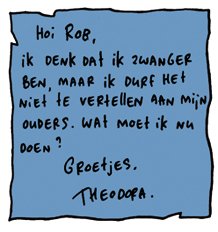 Hoi Rob,
ik denk dat ik zwanger
ben, maar ik durf het
niet te vertellen aan mijn
ouders. Wat moet ik nu
doen?
Groetjes.
Theodora.